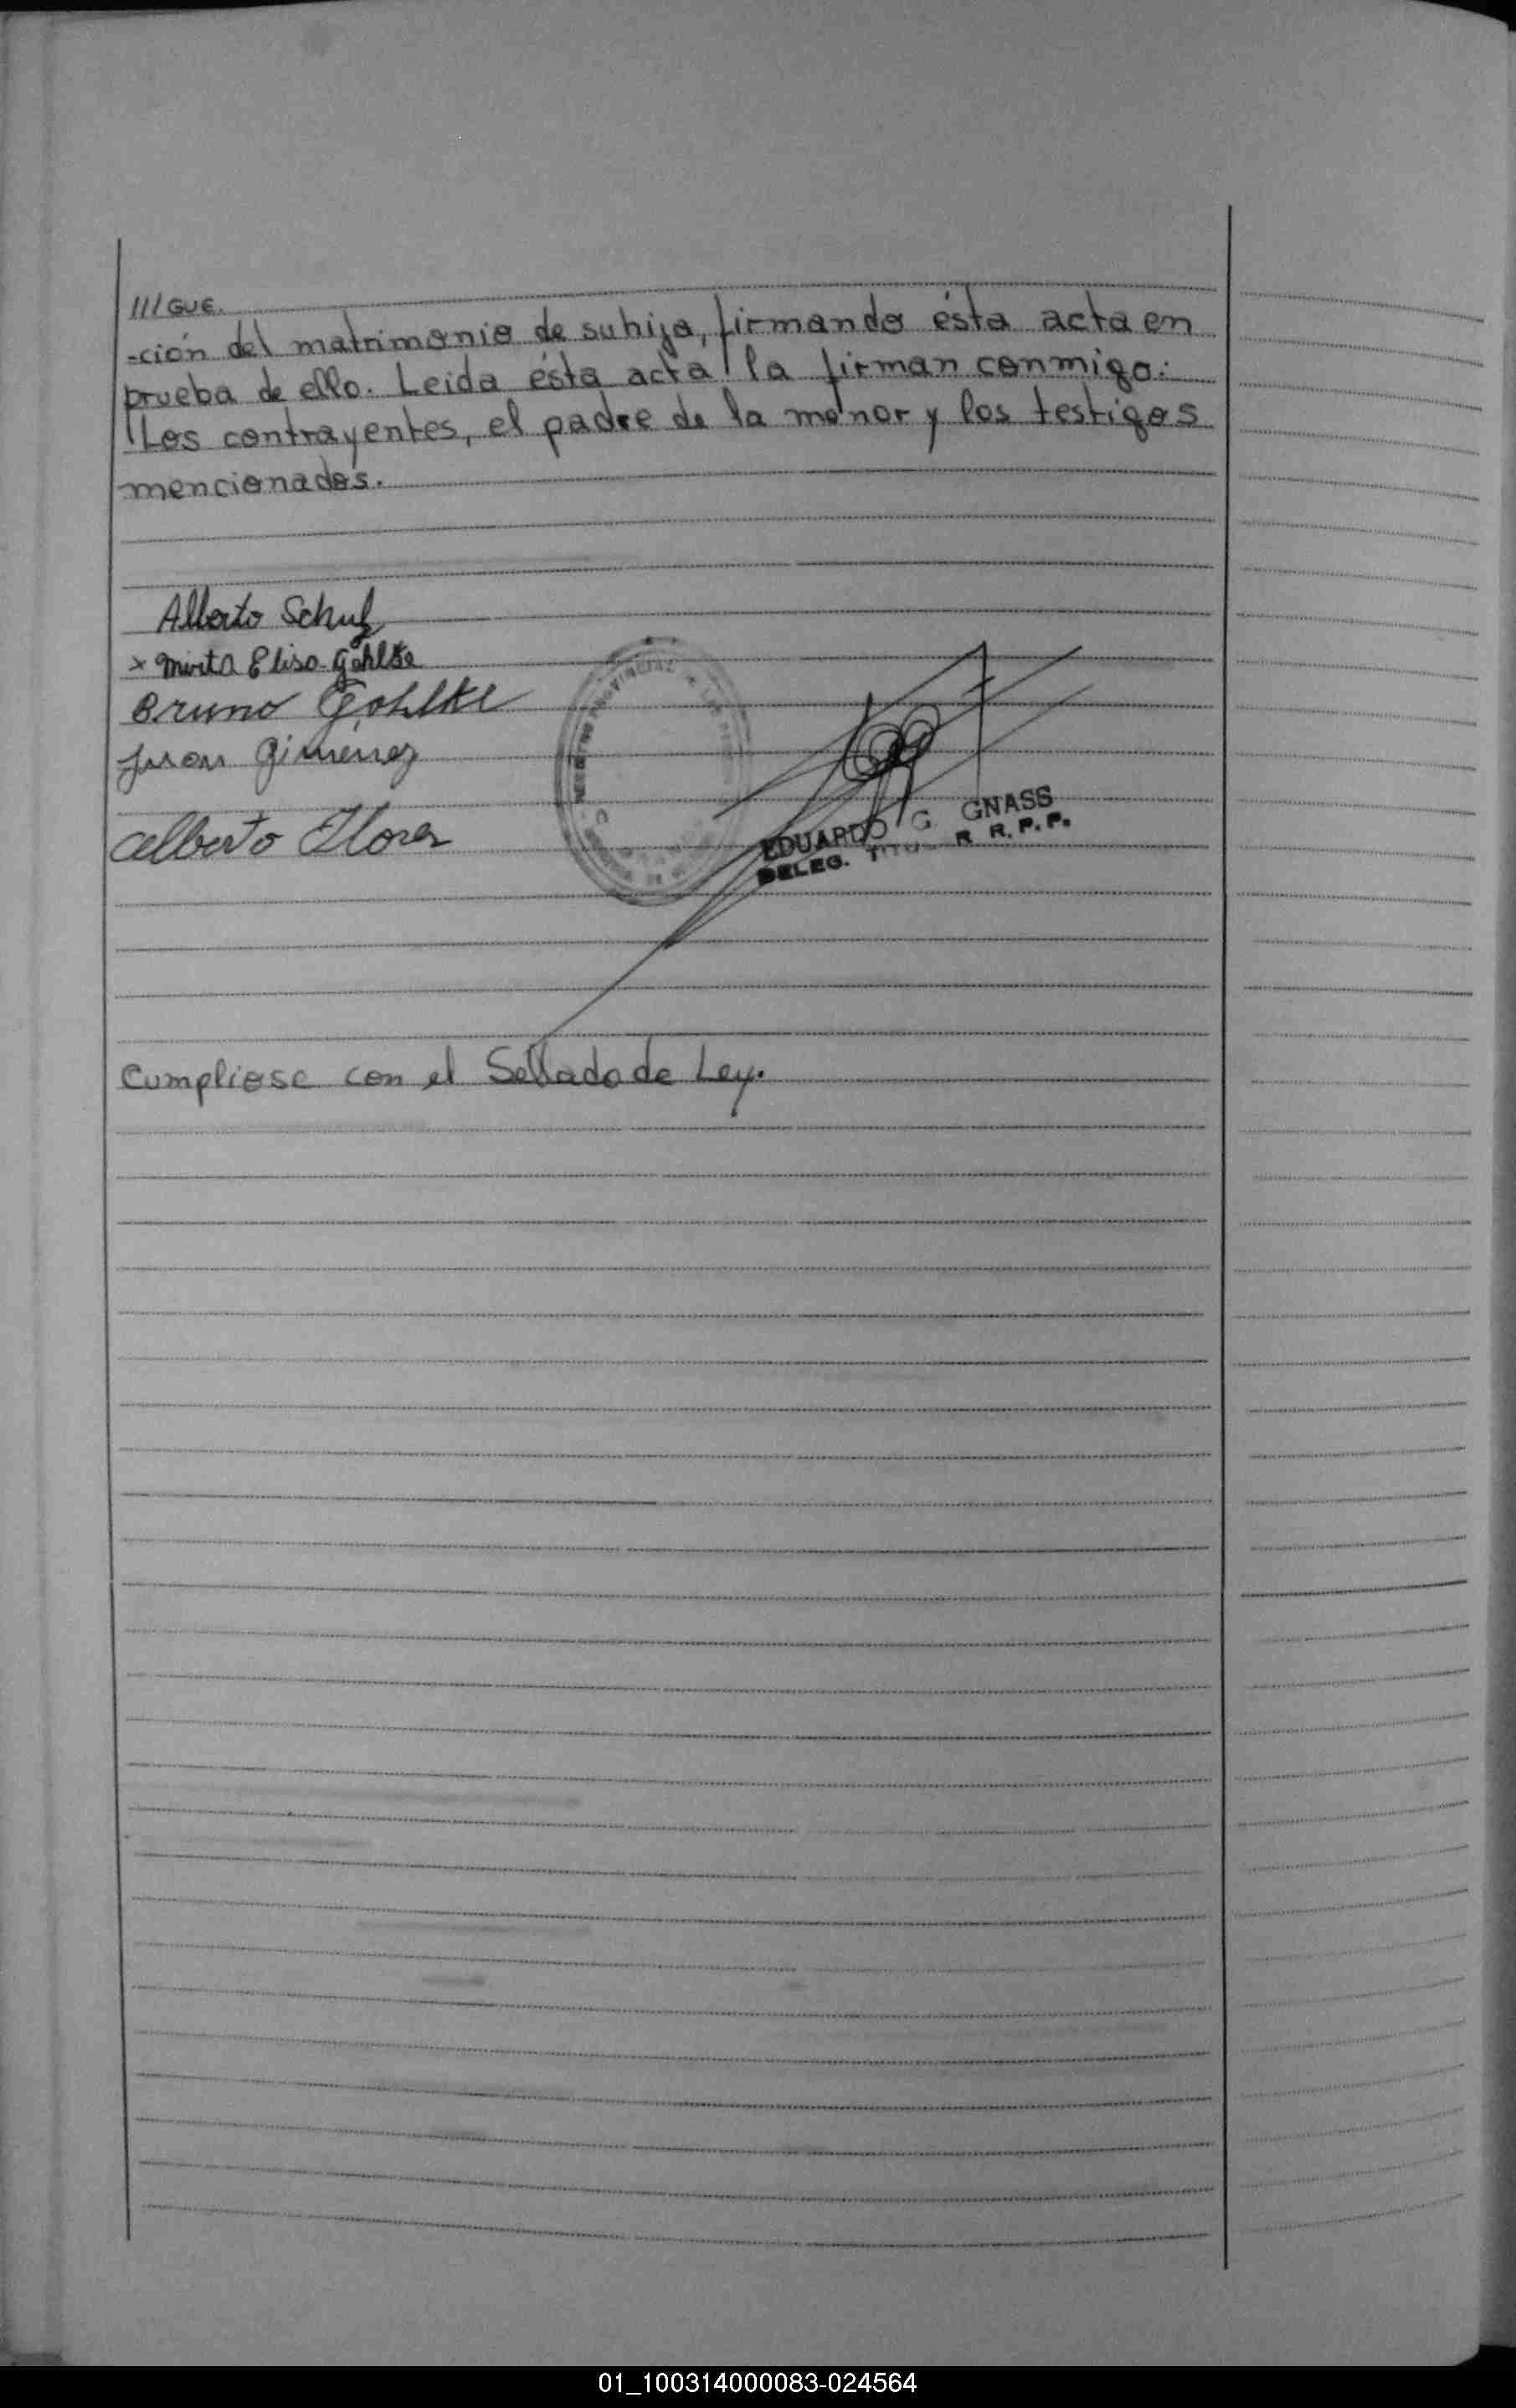 ///GUE.
-ción del matrimonio de su hija, firmando ésta acta en
prueba de ello. Leida ésta acta la firman conmigo:
Los contrayentes, el padre de la menor y los testigos
mencionados.
Alberto Schulz
x Mirta Elisa Gohlke
Bruno Gohlke
Juan Giménez
Alberto Flores
PROVINCIAL
EDUARDO G. GNASS
DELEG. TITUL R. R. P. P.
Cumpliose con el Sellado de Ley.
01_100314000083-024564